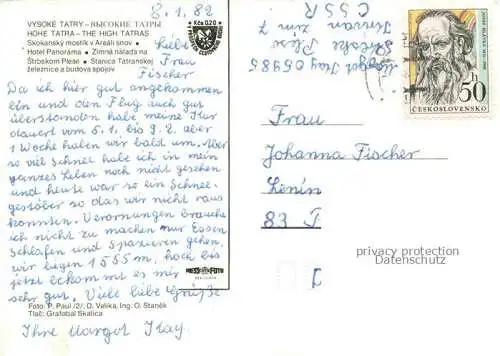 8.1.82
VYSOKÉ TATRY – ВЫСОКИЕ ТАТРЫ
HOHE TATRA – THE HIGH TATRAS
Skokanský mostík v Areáli snov •
Hotel Panoráma • Zimná nálada na
Štrbskom Plese • Stanica Tatranskej
železnice a budova spojov
Kčs 0,20
Liebe
Frau
Fischer
Da ich hier gut angekommen
bin und den Flug auch gut
überstonden habe meine Kur
dauert vom 5.1. bis 9.2. aber
1 Woche haben wir bald um. Aber
so viel Schnee habe ich in mein
ganzes Leben noch nicht gesehen
und heute war so ein Schnee-
gestöber so das wir nicht raus
konnten. Verornungen brauche
ich nicht zu machen nur Essen
Schlafen und Spazieren gehen,
wir liegen 1555 m, hoch bis
jetzt bekom mt es mir
sehr gut. Viele liebe Grüße
Ihre Margot Kay.
PRESSFOTO
Foto: P. Paul /2/, D. Velika, Ing. O. Staněk
Tlač: Grafobal Skalica
Margot Kay 05985
ČSSR
50
ČESKOSLOVENSKO
Frau
Johanna Fischer
Lenin
83
privacy protection
Datenschutz